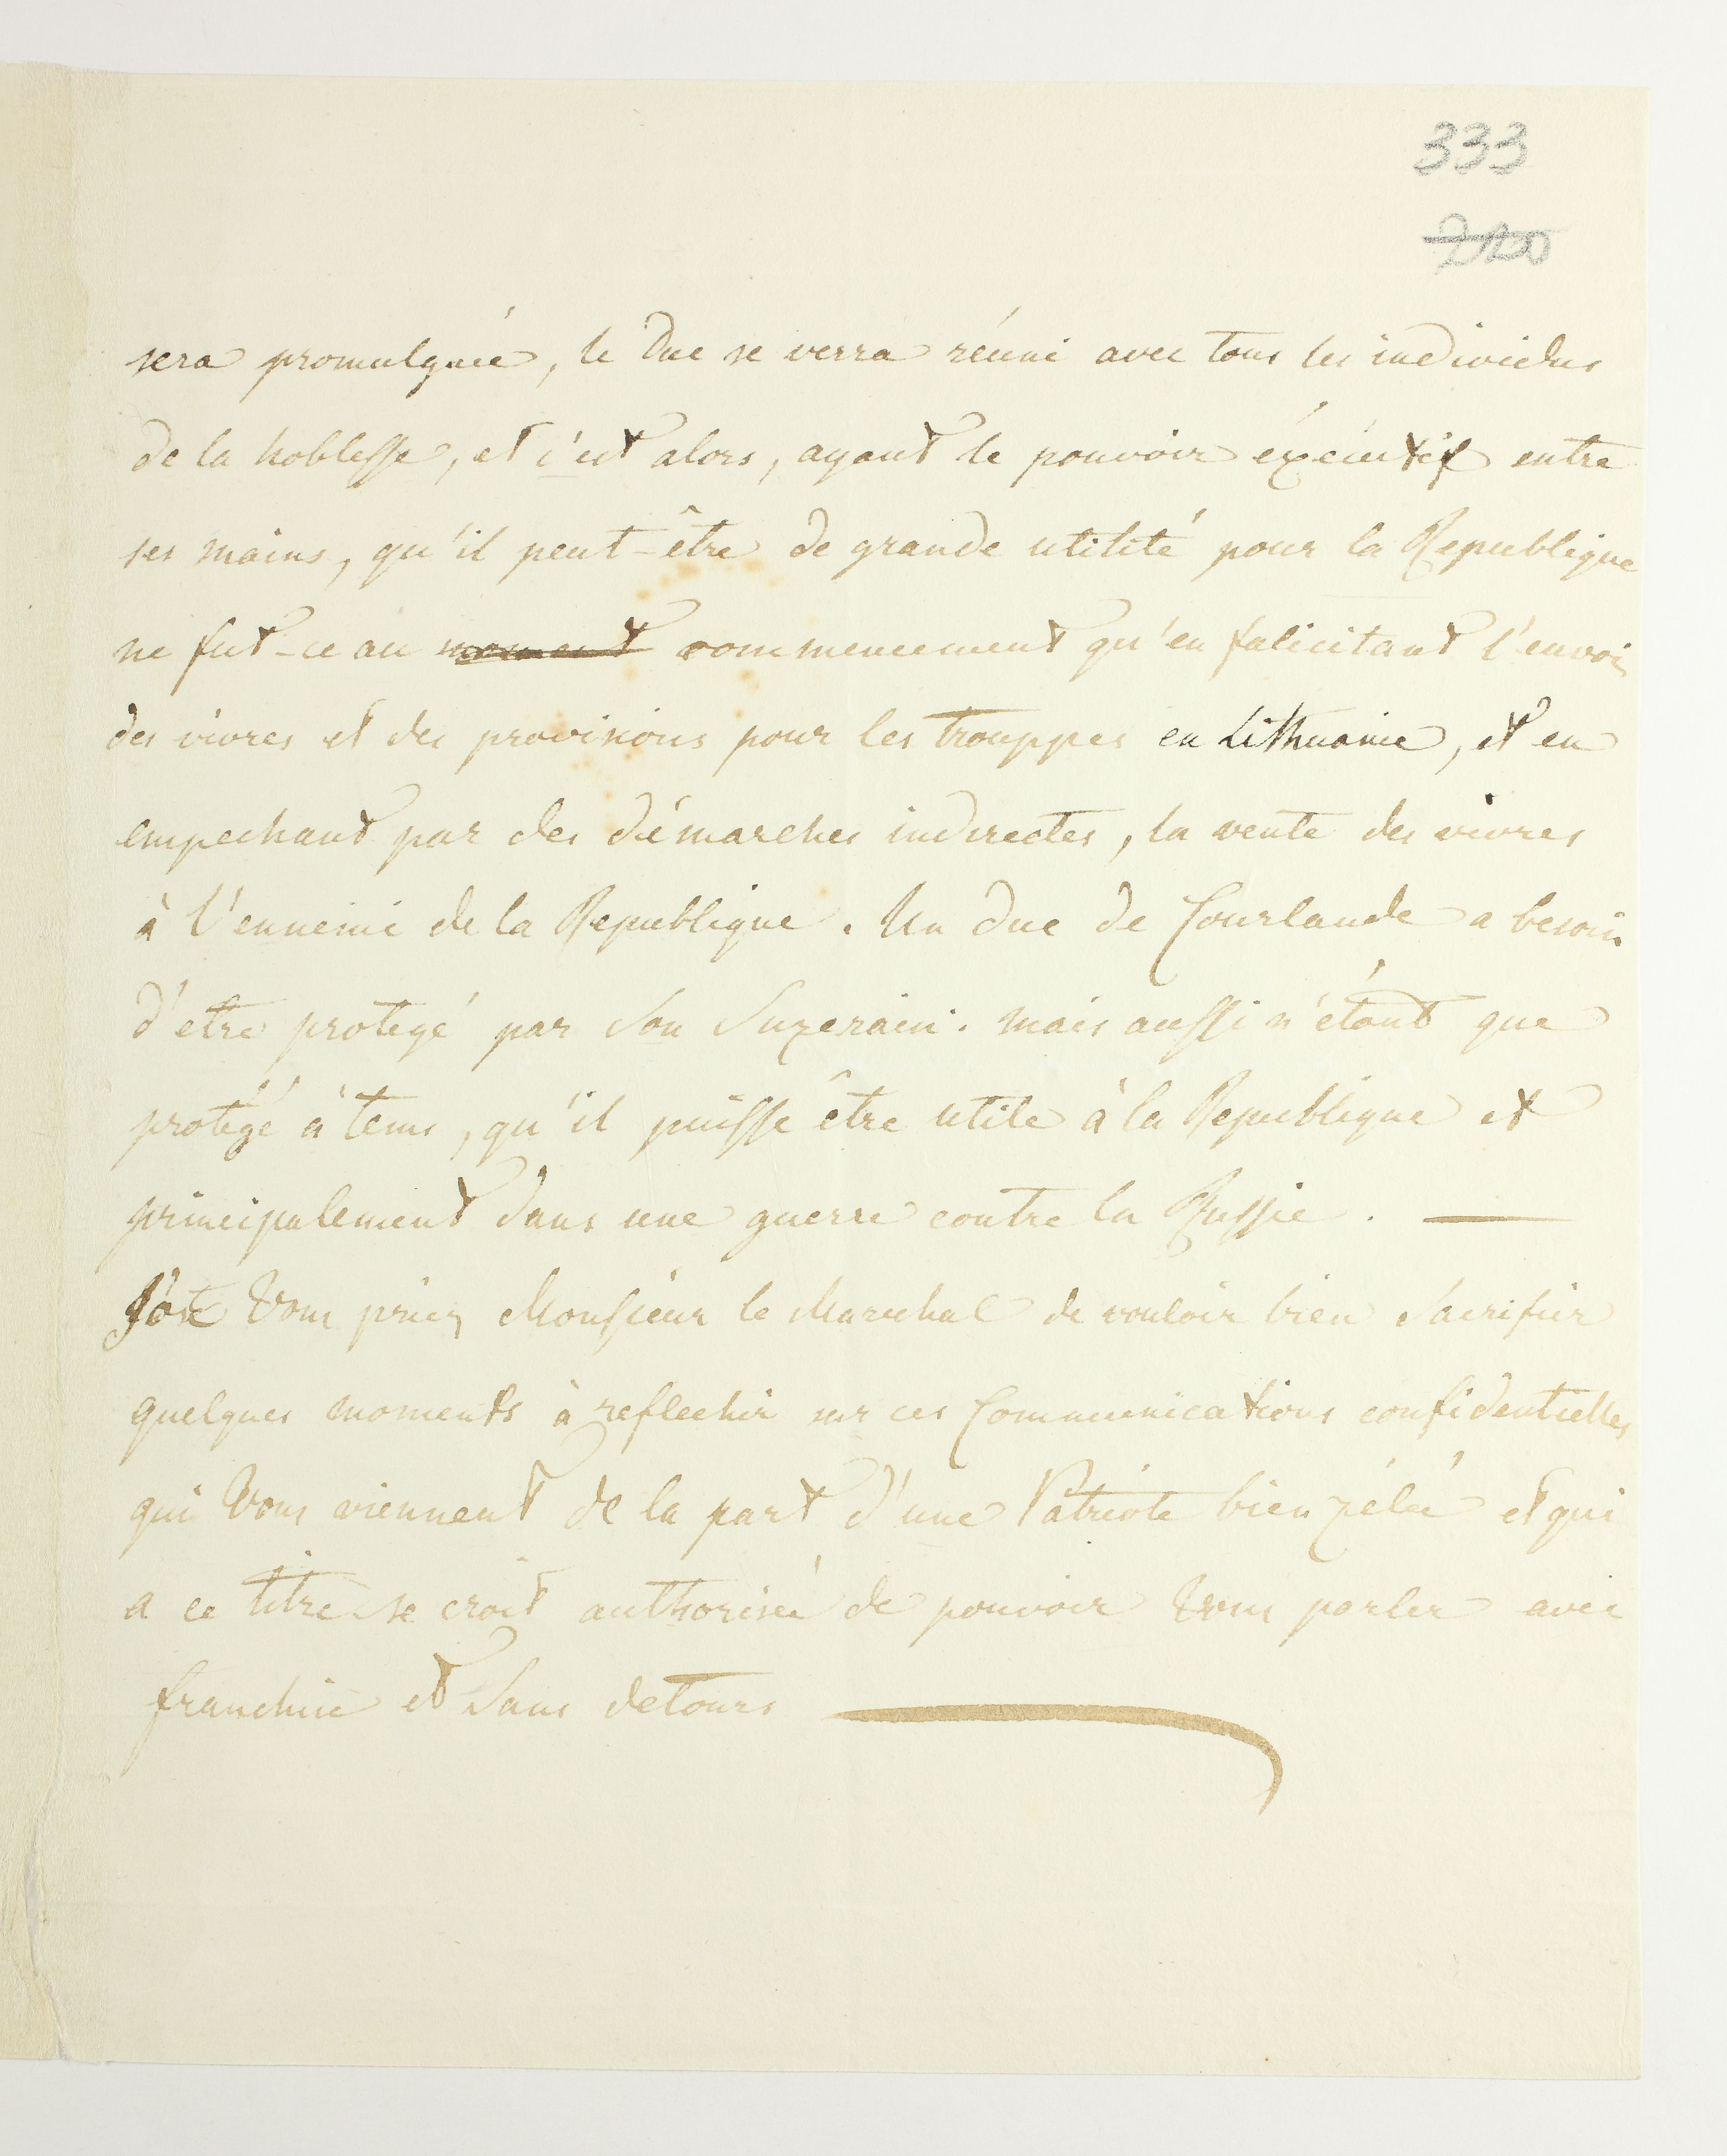 333
sera promulguée, le Duc se verra réuni avec tous les individus
de la noblesse, et c'est alors, ayant le pouvoir éxécutif entre
ses mains, qu'il peut-être de grande utilité pour la Republique
ne fut-ce au moment commencement qu'en falicitant l'envoi
des vivres et des provisions pour les trouppes en Lithuanie, et en
empechant par des démarches indirectes, la vente des vivres
à l'ennemi de la Republique. Un Duc de Courlande a besoin
d'etre protegé par son Suzerain. mais aussi n'étant que
protégé à tems, qu'il puisse être utile à la Republique et
principalement dans une guerre contre la Russie. —
J'ose Vous prier, Monsieur le Marechal de vouloir bien sacrifier
quelques moments à reflechir sur ces Communications confidentielles
qui Vous viennent de la part d'une Patriote bien zélée et qui
a ce titre se croit authorisée de pouvoir Vous parler avec
franchise et sans detours